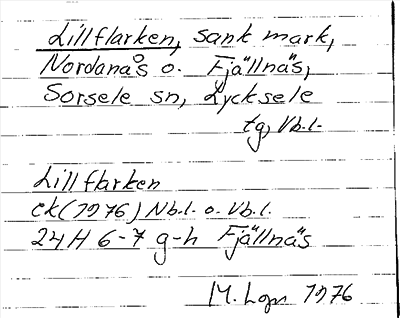 Lillflarken, sank mark,
Nordanås o. Fjällnäs,
Sorsele sn, Lycksele
tg, Vb.l.
Lillflarken
ek (1976) Nb.l. o. Vb.l.
24H 6-7 g-h Fjällnäs
M. 1976